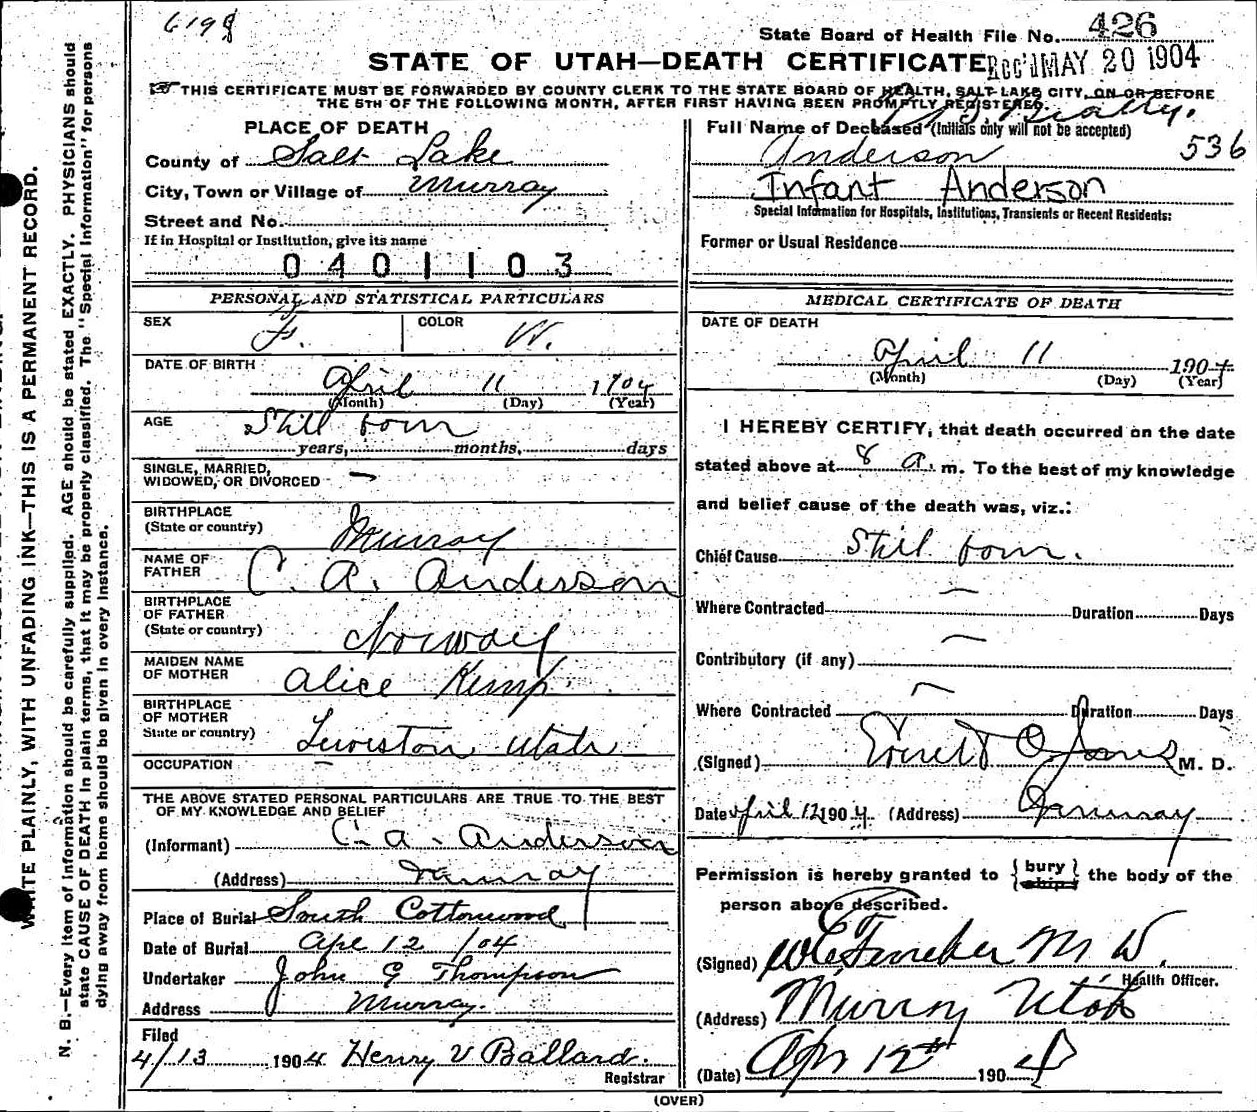 6198
State Board of Health File No. 426
STATE OF UTAH—DEATH CERTIFICATE
REC'D MAY 20 1904
THIS CERTIFICATE MUST BE FORWARDED BY COUNTY CLERK TO THE STATE BOARD OF HEALTH, SALT LAKE CITY, ON OR BEFORE
THE 5TH OF THE FOLLOWING MONTH, AFTER FIRST HAVING BEEN PROMPTLY REGISTERED.
PLACE OF DEATH
County of Salt Lake
City, Town or Village of Murray
Street and No.
If in Hospital or Institution, give its name
0401103
PERSONAL AND STATISTICAL PARTICULARS
SEX F. COLOR W.
DATE OF BIRTH
April 11 1904
(Month) (Day) (Year)
AGE Still born
years, months, days
SINGLE, MARRIED,
WIDOWED, OR DIVORCED —
BIRTHPLACE
(State or country) Murray
NAME OF
FATHER C. A. Anderson
BIRTHPLACE
OF FATHER
(State or country) Norway
MAIDEN NAME
OF MOTHER Alice Kemp
BIRTHPLACE
OF MOTHER
State or country) Lewiston Utah
OCCUPATION —
THE ABOVE STATED PERSONAL PARTICULARS ARE TRUE TO THE BEST
OF MY KNOWLEDGE AND BELIEF
(Informant) C. A. Anderson
(Address) Murray
Place of Burial South Cottonwood
Date of Burial Apr 12 /04
Undertaker John G Thompson
Address Murray.
Filed
4/13 1904 Henry V Ballard.
Registrar
Full Name of Deceased (Initials only will not be accepted)
Anderson 536
Infant Anderson
Special Information for Hospitals, Institutions, Transients or Recent Residents:
Former or Usual Residence
MEDICAL CERTIFICATE OF DEATH
DATE OF DEATH
April 11 1904
(Month) (Day) (Year)
I HEREBY CERTIFY, that death occurred on the date
stated above at 8 a. m. To the best of my knowledge
and belief cause of the death was, viz.:
Chief Cause Still born.
Where Contracted — Duration Days
Contributory (if any) —
Where Contracted — Duration Days
(Signed) Jones M. D.
Date April 12 1904 (Address) Murray
Permission is hereby granted to { bury ship } the body of the
person above described.
(Signed) M D.
Health Officer.
(Address) Murray Utah
(Date) Apr 12th 1904
(OVER)
WRITE PLAINLY, WITH UNFADING INK—THIS IS A PERMANENT RECORD.
N. B.—Every item of information should be carefully supplied. AGE should be stated EXACTLY. PHYSICIANS should
state CAUSE OF DEATH in plain terms, that it may be properly classified. The "Special Information" for persons
dying away from home should be given in every instance.